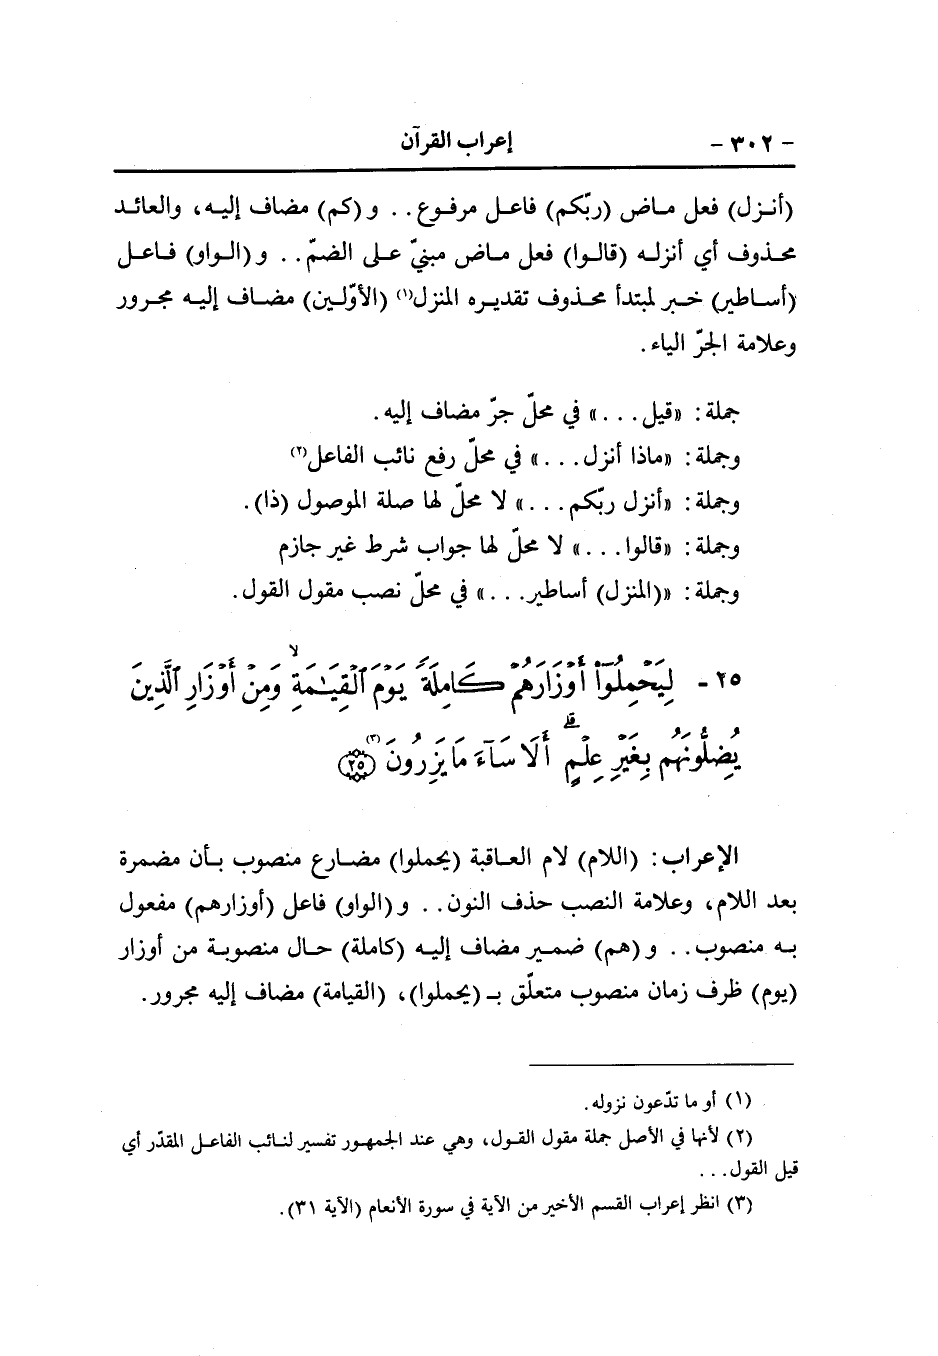 - ٣٠٢ - إعراب القرآن
(أنـزل) فعل مـاض (ربّكم) فاعـل مرفوع . . و (كم) مضاف إليـه، والعائـد
محـذوف أي أنزلـه (قالـوا) فعل مـاض مبنيّ على الضمّ . . و (الـواو) فـاعـل
(أسـاطير) خـبر لمبتدأ محـذوف تقديـره المنزل(١) (الأوّلـين) مضـاف إليـه مجـرور
وعلامة الجرّ الياء .
جملة : «قيل . . .» في محلّ جرّ مضاف إليه .
وجملة : «ماذا أنزل . . .» في محلّ رفع نائب الفاعل(٢)
وجملة : «أنزل ربّكم . . .» لا محلّ لها صلة الموصول (ذا) .
وجملة : «قالوا . . .» لا محلّ لها جواب شرط غير جازم
وجملة : «(المنزل) أساطير . . .» في محلّ نصب مقول القول .
٢٥ - لِيَحْمِلُوٓا۟ أَوْزَارَهُمْ كَامِلَةً يَوْمَ ٱلْقِيَـٰمَةِ ۙ وَمِنْ أَوْزَارِ ٱلَّذِينَ
يُضِلُّونَهُم بِغَيْرِ عِلْمٍ ۗ أَلَا سَآءَ مَا يَزِرُونَ(٣) ﴿٢٥﴾
الإعراب : (اللام) لام العـاقبة (يحملوا) مضـارع منصوب بـأن مضمرة
بعد اللام، وعلامة النصب حذف النون . . و (الواو) فاعل (أوزارهم) مفعول
بـه منصوب . . و (هم) ضمـير مضاف إليـه (كاملة) حـال منصوبـة من أوزار
(يوم) ظرف زمان منصوب متعلّق بـ (يحملوا)، (القيامة) مضاف إليه مجرور .
(١) أو ما تدّعون نزوله .
(٢) لأنها في الأصل جملة مقول القـول، وهي عند الجمهـور تفسير لنـائب الفاعـل المقدّر أي
قيل القول . . .
(٣) انظر إعراب القسم الأخير من الآية في سورة الأنعام (الآية ٣١) .